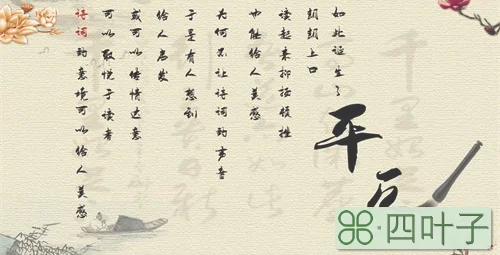 诗词的意境可以给人美感
可以取悦于读者
或可以传情达意
给人启发
于是有人想到
为何不让诗词的声音
也能给人美感
读起来抑扬顿挫
朗朗上口
如此诞生了
平仄
四叶子